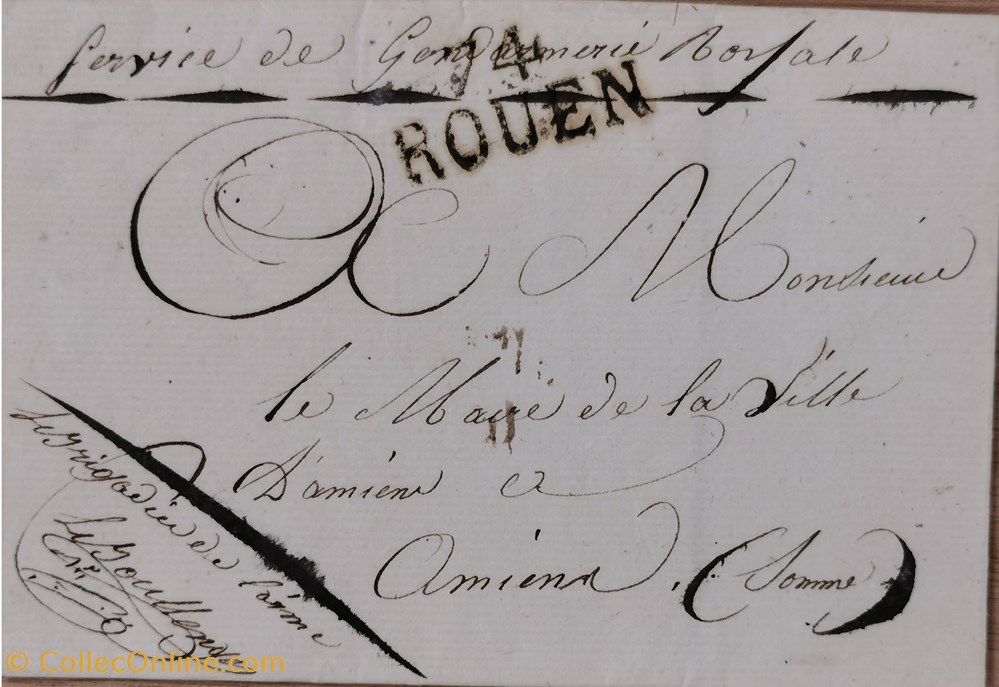 Service de Gendarmerie Royale
74
ROUEN
A Monsieur
le Maire de la Ville
D'amiens a
Amiens. (Somme)
le Brigadier de
l'arme
© CollecOnline.com